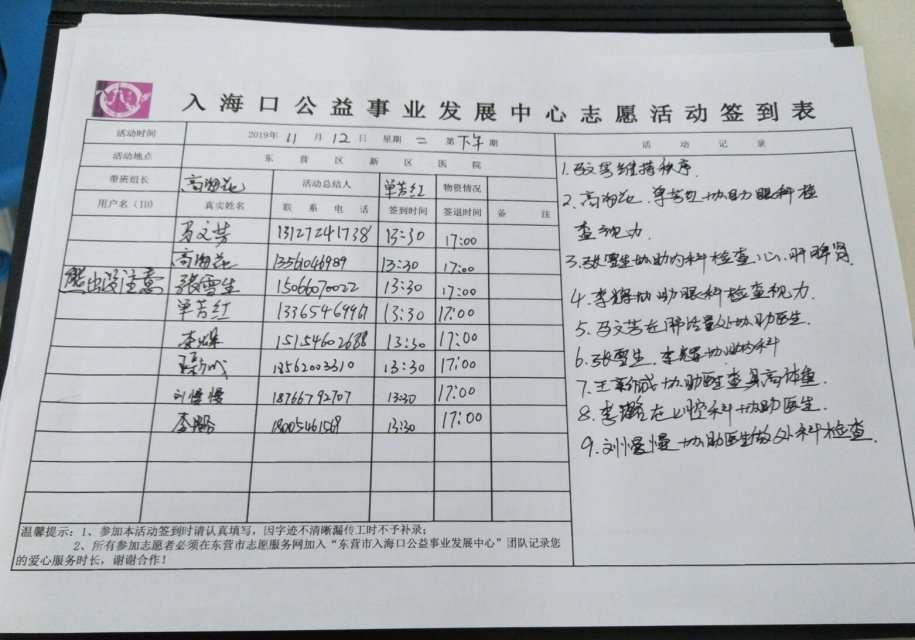 入海口公益事业发展中心志愿活动签到表
活动时间 2019年 11 月 12 日 星期 二 第 下午 期
活动地点 东营区新区医院
带班组长 高海花 活动总结人 单芳红 物资情况
用户名（ID） 真实姓名 联系电话 签到时间 签退时间 备注
马文芳 13127241738 13:30 17:00
高海花 13561046989 13:30 17:00
张雪生 15066070022 13:30 17:00
单芳红 13365469961 13:30 17:00
李辉 15154602688 13:30 17:00
13562003310 13:30 17:00
刘慢慢 18766792707 13:30 17:00
李璐 18005461569 13:30 17:00
温馨提示：1、参加本活动签到时请认真填写，因字迹不清晰漏传工时不予补录；
2、所有参加志愿者必须在东营市志愿服务网加入“东营市入海口公益事业发展中心”团队记录您
的爱心服务时长，谢谢合作！
活动记录
1.马文芳维持秩序.
2.高海花.单芳红协助眼科检
查视力.
3.张雪生协助内科检查心肝脾肾.
4.李辉协助眼科检查视力.
5.马文芳在肺活量处协助医生.
6.张雪生.李辉协助内科
7.王新成协助医查身高体重.
8.李璐在口腔科协助医生.
9.刘慢慢协助医生做外科检查.